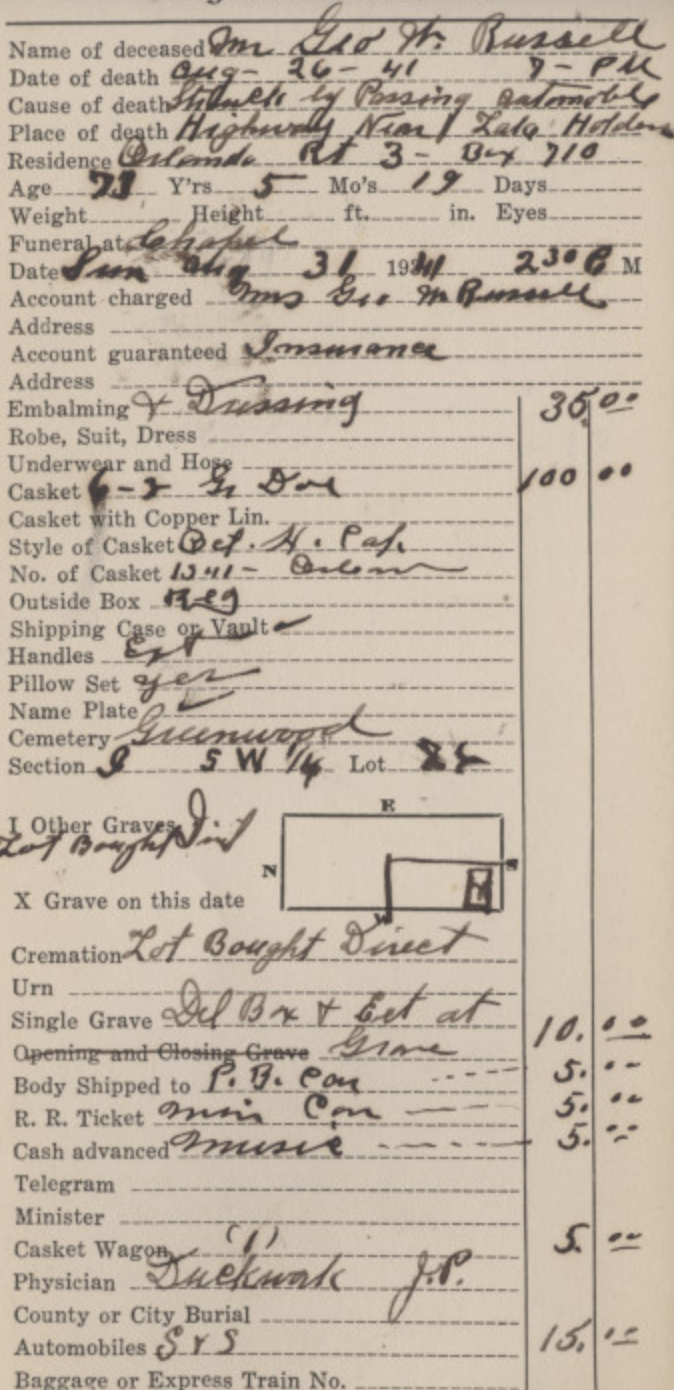 Name of deceased Mr Geo W. Russell
Date of death Aug- 26- 41 7- PM
Cause of death Struck by Passing automobile
Place of death Highway Near Lake Holden
Residence Orlando Rt 3- Box 710
Age 73 Y'rs 5 Mo's 19 Days
Weight Height ft. in. Eyes
Funeral at Chapel
Date Sun Aug 31 1941 2 30 P M
Account charged Mrs Geo W Russell
Address
Account guaranteed Insurance
Address
Embalming & Dressing 35.00
Robe, Suit, Dress
Underwear and Hose
Casket 6-3 Gr Doe 100 00
Casket with Copper Lin.
Style of Casket Oct.
No. of Casket
Outside Box Reg
Shipping Case or Vault ✓
Handles Ext
Pillow Set yes
Name Plate ✓
Cemetery Greenwood
Section S W 1/4 Lot
E
I Other Graves
Lot Bought Dirt
N S
X Grave on this date
W
Cremation Lot Bought Direct
Urn
Single Grave Del Box & Eqt at 10.00
Opening and Closing Grave Grave
Body Shipped to P. B. Car 5.00
R. R. Ticket Min Car 5.00
Cash advanced Music 5.00
Telegram
Minister
Casket Wagon (1) 5.00
Physician J.P.
County or City Burial
Automobiles S & S 15.00
Baggage or Express Train No.